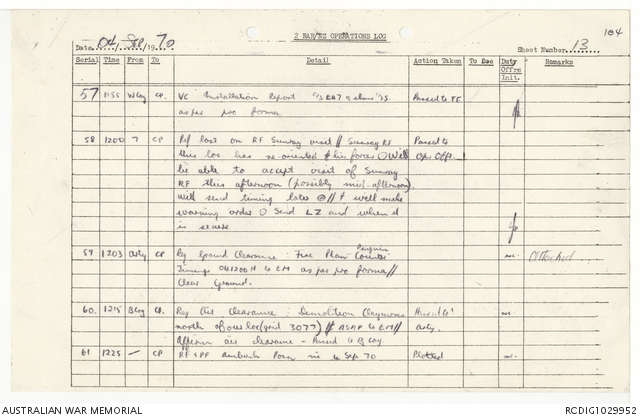 184
2 RAR/NZ OPERATIONS LOG
Date 04 Sep 1970
Sheet Number 13
Serial Time From To Detail Action Taken To Dec Duty Offrs Init. Remarks
57 1155 W Coy CP. VC Installation Report Passed to
as per pro forma
58 1200 7 CP Ref last on RF Sunray visit // Sunray RF Passed to
this loc has re-oriented his forces Will Ops Offr
be able to accept visit of Sunray
RF this afternoon (possibly mid-afternoon)
will send timing later // will make
warning order Send LZ and when it
is secure
59 1203 Arty CP Req Ground Clearance : Fire Plan Penguin Counter Attached
Timings 041200H to EM as per pro forma //
Clear Ground.
60. 1215 B Coy CP. Req Air Clearance : Demolition Claymores
north of our loc (grid 3077) // ASAP to EM // Arty.
Affirm air clearance - Passed to B Coy
61 1225 — CP RF & PF Ambush Posn in 4 Sep 70 Plotted
AUSTRALIAN WAR MEMORIAL
RCDIG1029952